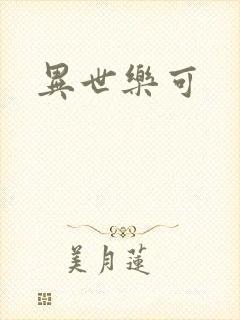 異世樂可
美月蓮